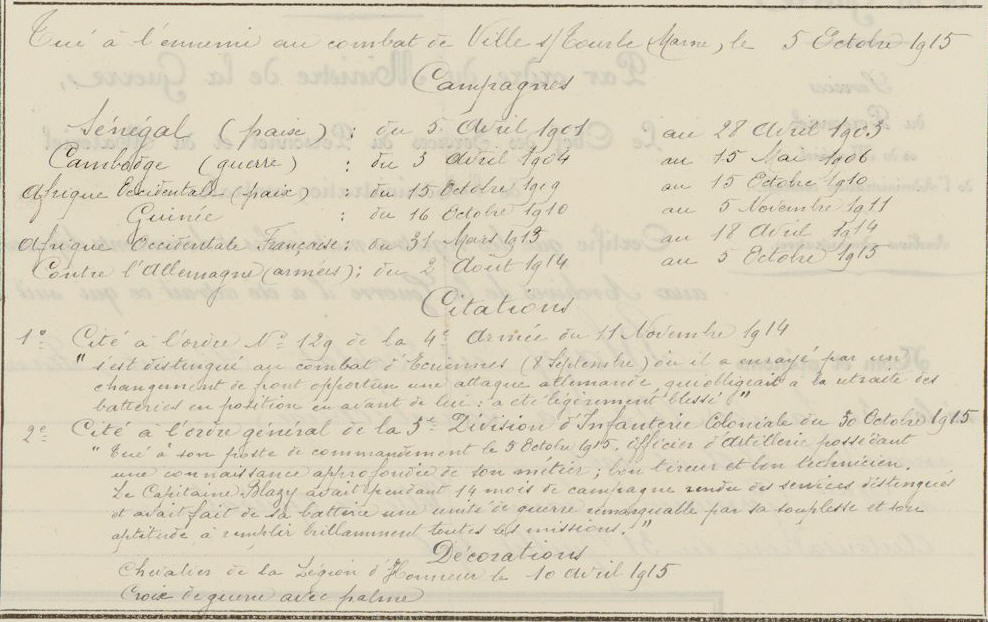 Tué à l'ennemi au combat de Ville s/Tourbe (Marne), le 5 Octobre 1915
Campagnes
Sénégal (paix) : du 5 Avril 1901 au 28 Avril 1903
Cambodge (guerre) : du 3 Avril 1904 au 15 Mai 1906
Afrique Occidentale (paix) : du 15 Octobre 1909 au 15 Octobre 1910
Guinée : du 16 Octobre 1910 au 5 Novembre 1911
Afrique Occidentale Française : du 31 Mars 1913 au 18 Avril 1914
Contre l'Allemagne (armées) : du 2 Août 1914 au 5 Octobre 1915
Citations
1º Cité à l'ordre Nº 129 de la 4e Armée du 11 Novembre 1914
" s'est distingué au combat d'Ecriennes (8 Septembre) où il a enrayé par un
changement de front opportun une attaque allemande, qui obligeait à la retraite des
batteries en position en avant de lui : a été légèrement blessé "
2e Cité à l'ordre général de la 3e Division d'Infanterie Coloniale du 30 Octobre 1915
" Tué à son poste de commandement le 5 Octobre 1915. Officier d'Artillerie possédant
une connaissance approfondie de son métier ; bon tireur et bon technicien.
Le Capitaine Blazy avait pendant 14 mois de campagne rendu des services distingués
et avait fait de sa batterie une unité de guerre remarquable par sa souplesse et son
aptitude à remplir brillamment toutes les missions. "
Décorations
Chevalier de la Légion d'Honneur le 10 Avril 1915
Croix de guerre avec palme